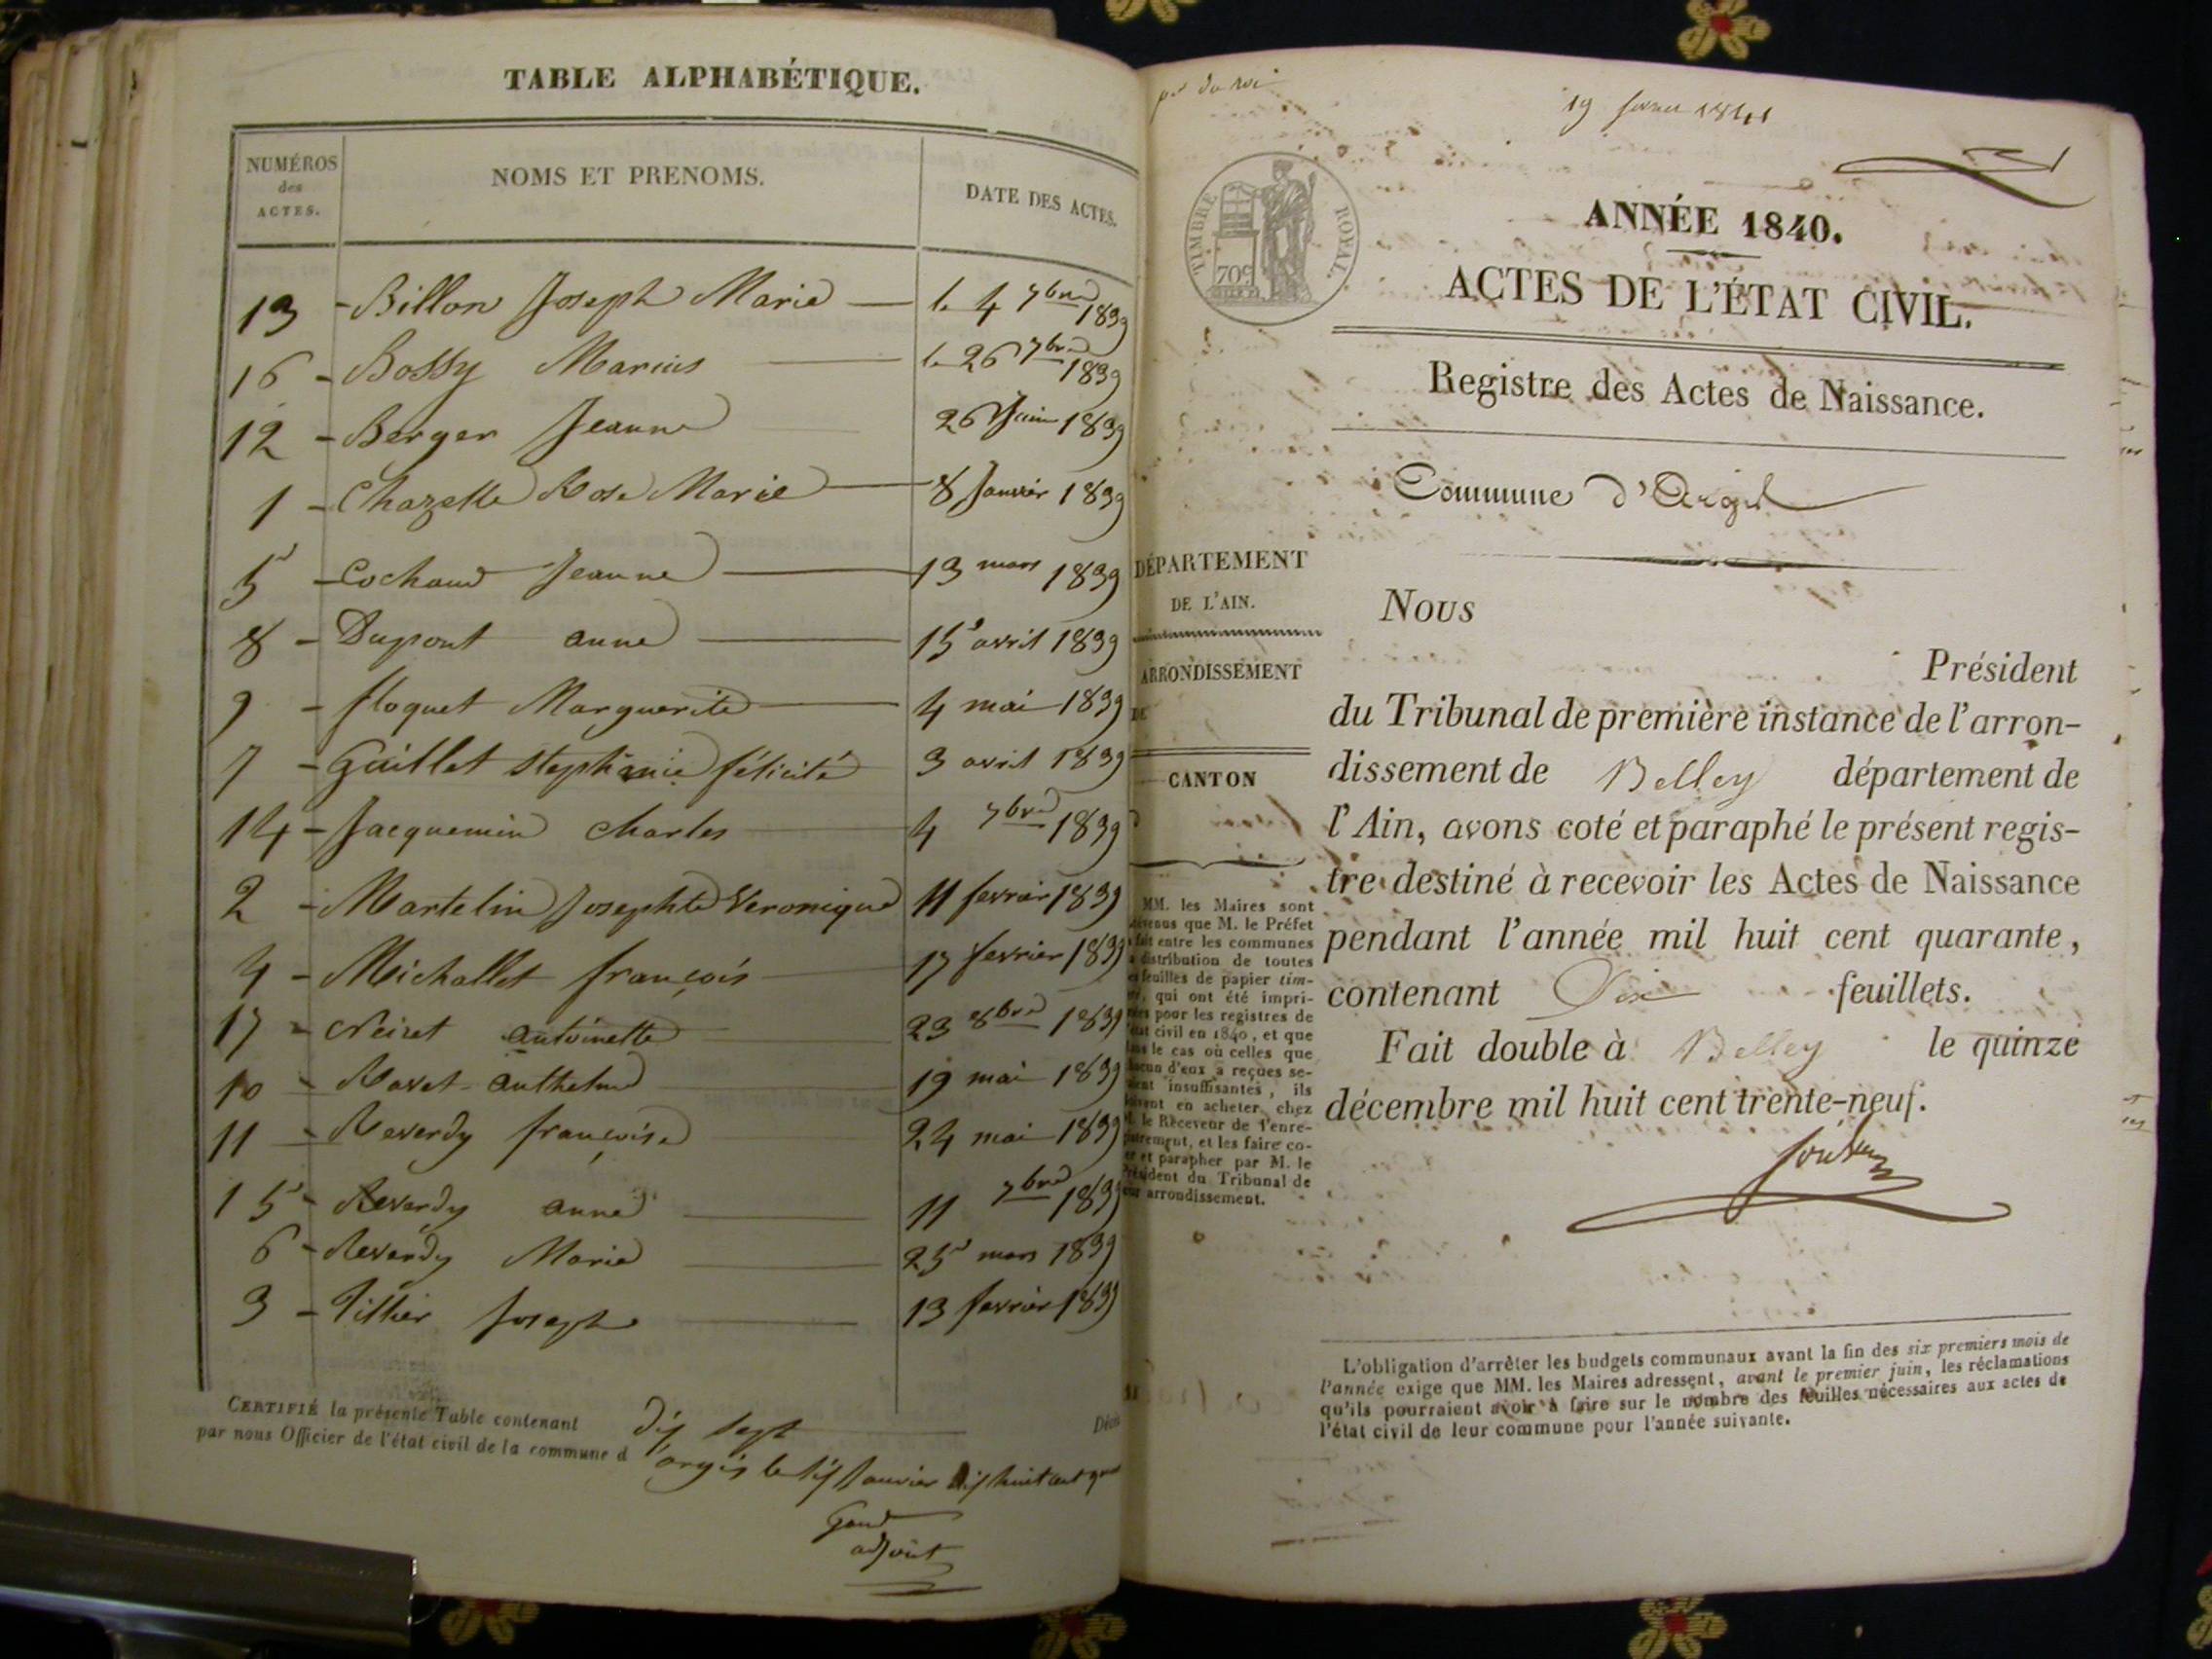 TABLE ALPHABÉTIQUE.
NUMÉROS des ACTES. NOMS ET PRENOMS. DATE DES ACTES.
13 - Billon Joseph Marie le 4 7bre 1839
16 - Bossy Marius le 26 7bre 1839
12 - Berger Jeanne 26 Juin 1839
1 - Chazelle Rose Marie 8 Janvier 1839
5 - Cochaud Jeanne 13 mars 1839
8 - Dupont anne 15 avril 1839
9 - floquet Marguerite 4 mai 1839
7 - Guillet stephanie félicité 3 avril 1839
14 - Jacquemin charles 4 7bre 1839
2 - Martelin Josephte Veronique 11 fevrier 1839
4 - Michallet françois 17 fevrier 1839
17 - Neiret antoinette 23 8bre 1839
10 - Ravet anthelme 19 mai 1839
11 - Reverdy françoise 24 mai 1839
15 - Reverdy anne 11 7bre 1839
6 - Reverdy Marie 25 mars 1839
3 - Tillier Joseph 13 fevrier 1839
CERTIFIÉ la présente Table contenant dix sept
par nous Officier de l'état civil de la commune d'argis le Janvier huit cent
adjoint
19 1841
TIMBRE ROYAL.
70c
ANNÉE 1840.
ACTES DE L'ÉTAT CIVIL.
Registre des Actes de Naissance.
Commune d'Argis
DÉPARTEMENT
DE L'AIN.
ARRONDISSEMENT
DE
CANTON
MM. les Maires sont
que M. le Préfet
fait entre les communes
distribution de toutes
feuilles de papier tim-
qui ont été impri-
pour les registres de
civil en 1840, et que
le cas où celles que
d'eux a reçues se-
insuffisantes, ils
en acheter chez
le Receveur de l'enre-
et les faire co-
et parapher par M. le
Président du Tribunal de
arrondissement.
Nous
Président
du Tribunal de première instance de l'arron-
dissement de Belley département de
l'Ain, avons coté et paraphé le présent regis-
tre destiné à recevoir les Actes de Naissance
pendant l'année mil huit cent quarante,
contenant feuillets.
Fait double à Belley le quinze
décembre mil huit cent trente-neuf.
L'obligation d'arrêter les budgets communaux avant la fin des six premiers mois de
l'année exige que MM. les Maires adressent, avant le premier juin, les réclamations
qu'ils pourraient avoir à faire sur le nombre des feuilles nécessaires aux actes de
l'état civil de leur commune pour l'année suivante.